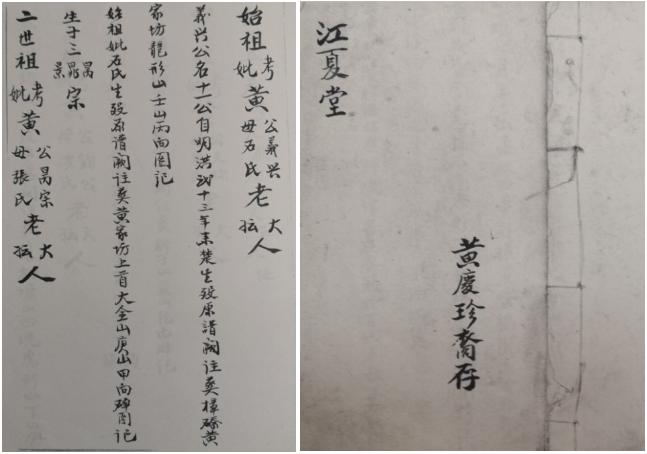 始祖考妣黄公義兴母石氏老大孺人
義兴公名十一公自明洪武十三年来楚生殁原譜阙注葬樟磜黄
家坊龍形山壬山丙向图记
始祖妣石氏生殁原譜阙注葬黄家坊上首大全山庚山甲向碑图记
生子三昺晁景宗
二世祖考妣黄公昺宗母張氏老大孺人
江夏堂
黄慶珍裔存